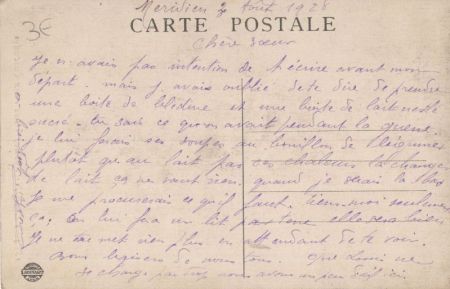 3€
Meridien 2 Août 1928
CARTE POSTALE
Chère sœur
Je n'avais pas intention de t'écrire avant mon
départ, mais j'avais oublié de te dire de prendre
une boîte de blédine et une boîte de lait nestlé
sucré. tu sais ce qu'on avait pendant la guerre.
je lui ferais ses soupes au bouillon de légumes
plutôt qu'au lait pas ces chaleurs la change
de lait ça ne vaut rien. quand je serais la bas
Je me procurerais ce qu'il faut. seulement
ça. On lui fera un lit elle sera bien
Je ne te met rien plus en attendant de te voir.
Bons baisers de nous tous. que Louis ne
se change pas trop nous avons un peu